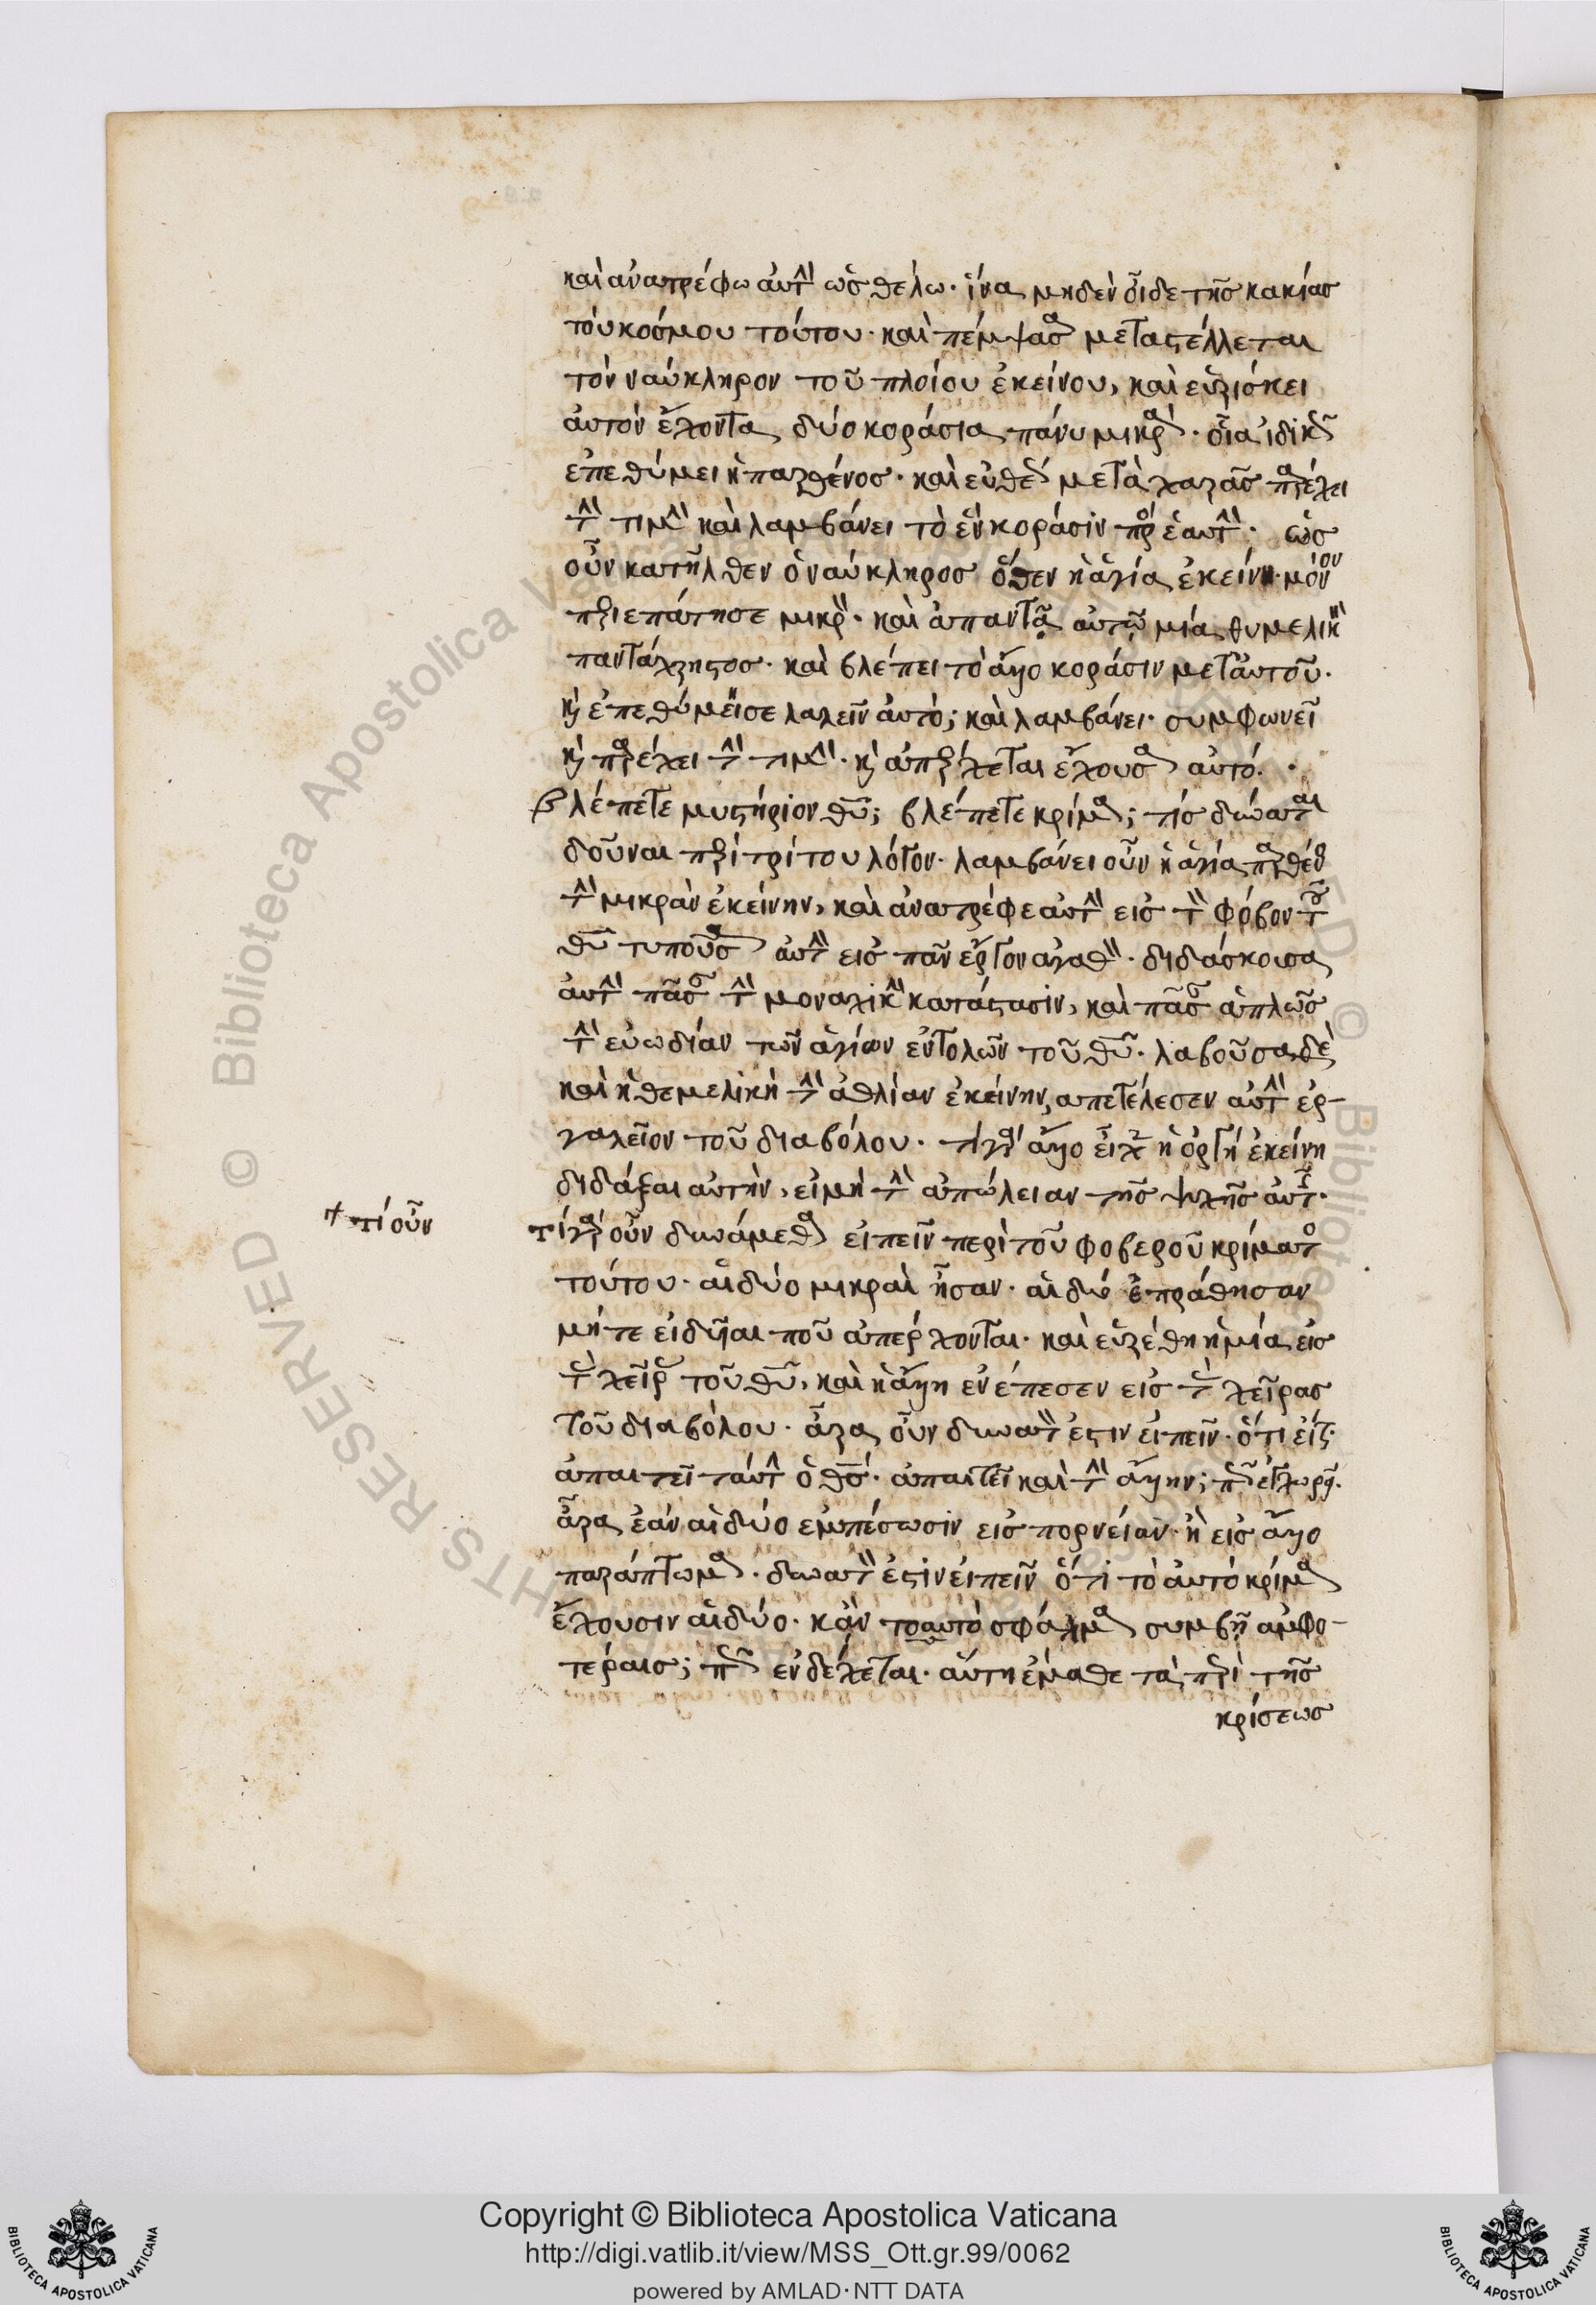 καὶ ἀνατρέφω αὐτὴν ὡς θέλω· ἵνα μηδὲν οἶδε τῆς κακίας
τοῦ κόσμου τούτου· καὶ πέμψασα μεταστέλλεται
τὸν ναύκληρον τοῦ πλοίου ἐκείνου, καὶ εὑρίσκει
αὐτὸν ἔχοντα δύο κοράσια πάνυ μικρὰ· οἷα
ἐπεθύμει ἡ παρθένος· καὶ εὐθέως μετὰ χαρᾶς παρέχει
τὴν τιμὴν καὶ λαμβάνει τὸ ἓν κοράσιν πρὸς ἑαυτήν· ὡς
οὖν κατῆλθεν ὁ ναύκληρος ὅθεν ἡ ἁγία ἐκείνη· μόνον
περιεπάτησε μικρὸν· καὶ ἀπαντᾷ αὐτῷ μία θυμελικὴ
παντάχρηστος· καὶ βλέπει τὸ ἄλλο κοράσιν μετ αὐτοῦ·
καὶ ἐπεθύμεισε λαλεῖν αὐτό; καὶ λαμβάνει· συμφωνεῖ
καὶ παρέχει τὴν τιμὴν· καὶ ἀπέρχεται ἔχουσα αὐτό·
βλέπετε μυστήριον θυ; βλέπετε κρίμα; τίς δύναται
δοῦναι περὶ τούτου λόγον· λαμβάνει οὖν ἡ ἁγία παρθένος
τὴν μικρὰν ἐκείνην, καὶ ἀνατρέφε αὐτὴν εἰς τὸν φόβον τοῦ
θυ τυποῦσα αὐτὴν εἰς πᾶν ἔργον ἀγαθὸν· διδάσκουσα
αὐτὴν πᾶσαν τὴν μοναχικὴν κατάστασιν, καὶ πᾶσαν ἁπλῶς
τὴν εὐωδίαν τῶν ἁγίων ἐντολῶν τοῦ θυ· λαβοῦσα δὲ
καὶ ἡ θεμελικὴ τὴν ἀθλίαν ἐκείνην, ἀπετέλεσεν αὐτὴν ἐρ-
γαλεῖον τοῦ διαβόλου· τί γὰρ ἄλλο εἶχεν ἡ ὀργὴ ἐκείνη
διδάξαι αὐτὴν, εἰ μὴ τὴν ἀπώλειαν τῆς ψυχῆς αὐτῆς·
τί οὖν
τί γὰρ οὖν δυνάμεθα εἰπεῖν περὶ τοῦ φοβεροῦ κρίματος
τούτου· αἱ δύο μικραὶ ἦσαν· αἱ δύο ἐπράθησαν
μήτε εἰδυῖαι ποῦ ἀπέρχονται· καὶ εὑρέθη ἡ μία εἰς
τὰς χεῖρας τοῦ θυ, καὶ ἡ ἄλλη ἐνέπεσεν εἰς τὰς χεῖρας
τοῦ διαβόλου· ἆρα οὖν δυνατὸν ἐστιν εἰπεῖν· ὅτι εἴ τι
ἀπαιτεῖ ταύτην ὁ θς· ἀπαιτεῖ καὶ τὴν ἄλλην;
ἆρα ἐὰν αἱ δύο ἐμπέσωσιν εἰς πορνείαν· ἢ εἰς ἄλλο
παράπτωμα· δυνατὸν ἐστιν εἰπεῖν ὅτι τὸ αὐτὸ κρίμα
ἔχουσιν αἱ δύο· κἂν τὸ αὐτὸ σφάλμα συμβῇ ἀμφο-
τέραις; πῶς ἐνδέχεται· αὕτη ἔμαθε τὰ περὶ τῆς
κρίσεως
Copyright © Biblioteca Apostolica Vaticana
http://digi.vatlib.it/view/MSS_Ott.gr.99/0062
powered by AMLAD·NTT DATA
BIBLIOTECA APOSTOLICA VATICANA
BIBLIOTECA APOSTOLICA VATICANA